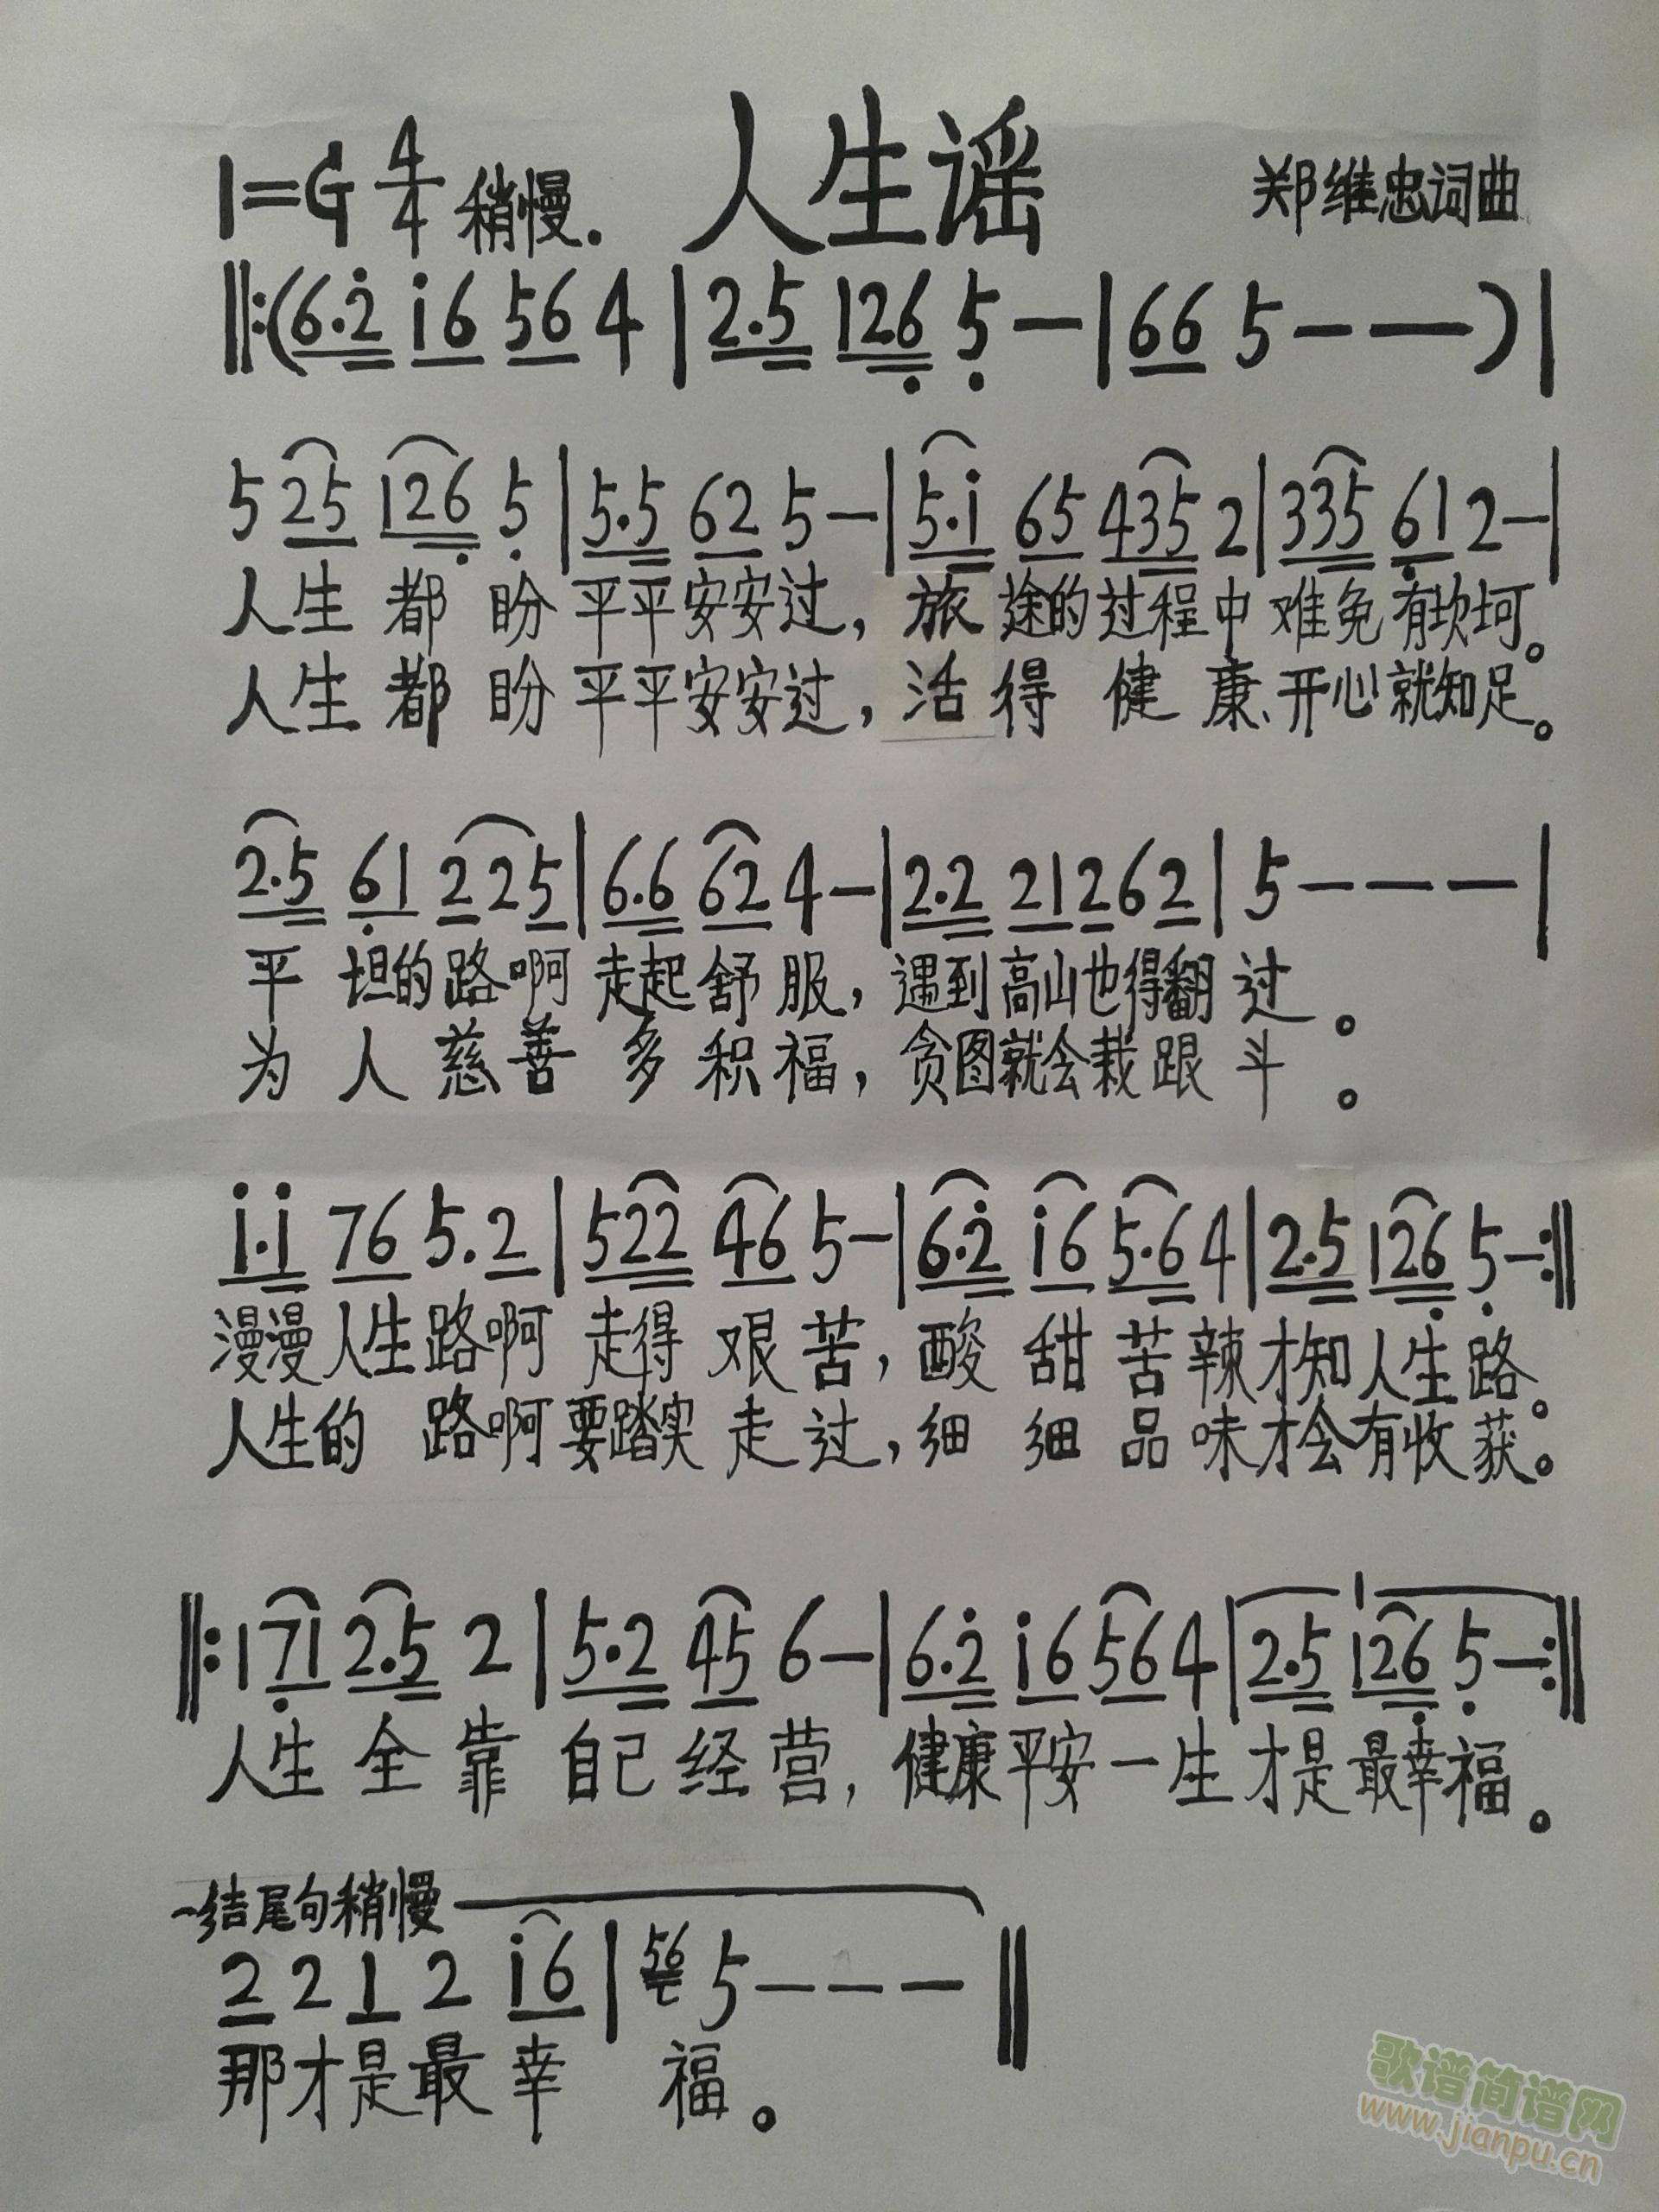 1=G 4/4 稍慢. 人生谣 郑维忠词曲
‖:(6·2̇ i6 56 4 | 2·5 126 5 — | 66 5 — — —) |
5 25 126 5 | 5·5 62 5 — | 5·i 65 435 2 | 335 61 2 — |
人生都盼平平安安过，旅途的过程中难免有坎坷。
人生都盼平平安安过，活得健康、开心就知足。
2·5 61 2 2 5 | 6·6 62 4 — | 2·2 21 2 6 2 | 5 — — — |
平坦的路啊走起舒服，遇到高山也得翻过。
为人慈善多积福，贪图就会栽跟斗。
i·i 76 5·2 | 522 46 5 — | 6·2̇ i6 5·6 4 | 2·5 126 5 — :‖
漫漫人生路啊走得艰苦，酸甜苦辣才知人生路。
人生的路啊要踏实走过，细细品味才会有收获。
‖: 1 71 2·5 2 | 5·2 45 6 — | 6·2̇ i6 56 4 | 2·5 126 5 — :‖
人生全靠自己经营，健康平安一生才是最幸福。
结尾句稍慢
2 2 1 2 i6 | 56 5 — — — ‖
那才是最幸福。
歌谱简谱网
www.jianpu.cn